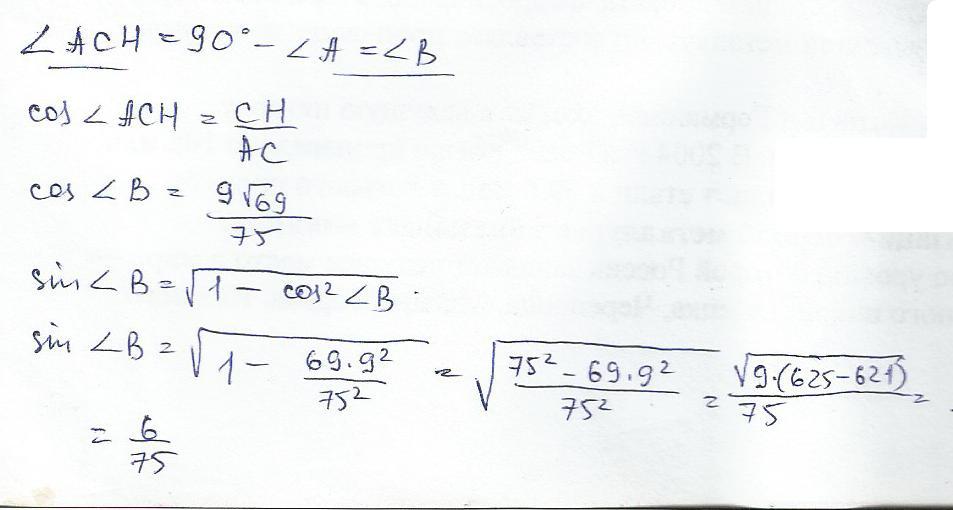 ∠ACH = 90° - ∠A = ∠B
cos ∠ACH = CH/AC
cos ∠B = 9√69/75
sin ∠B = √(1 - cos² ∠B)
sin ∠B = √(1 - 69·9²/75²) = √((75² - 69·9²)/75²) = √(9·(625-621))/75 =
= 6/75